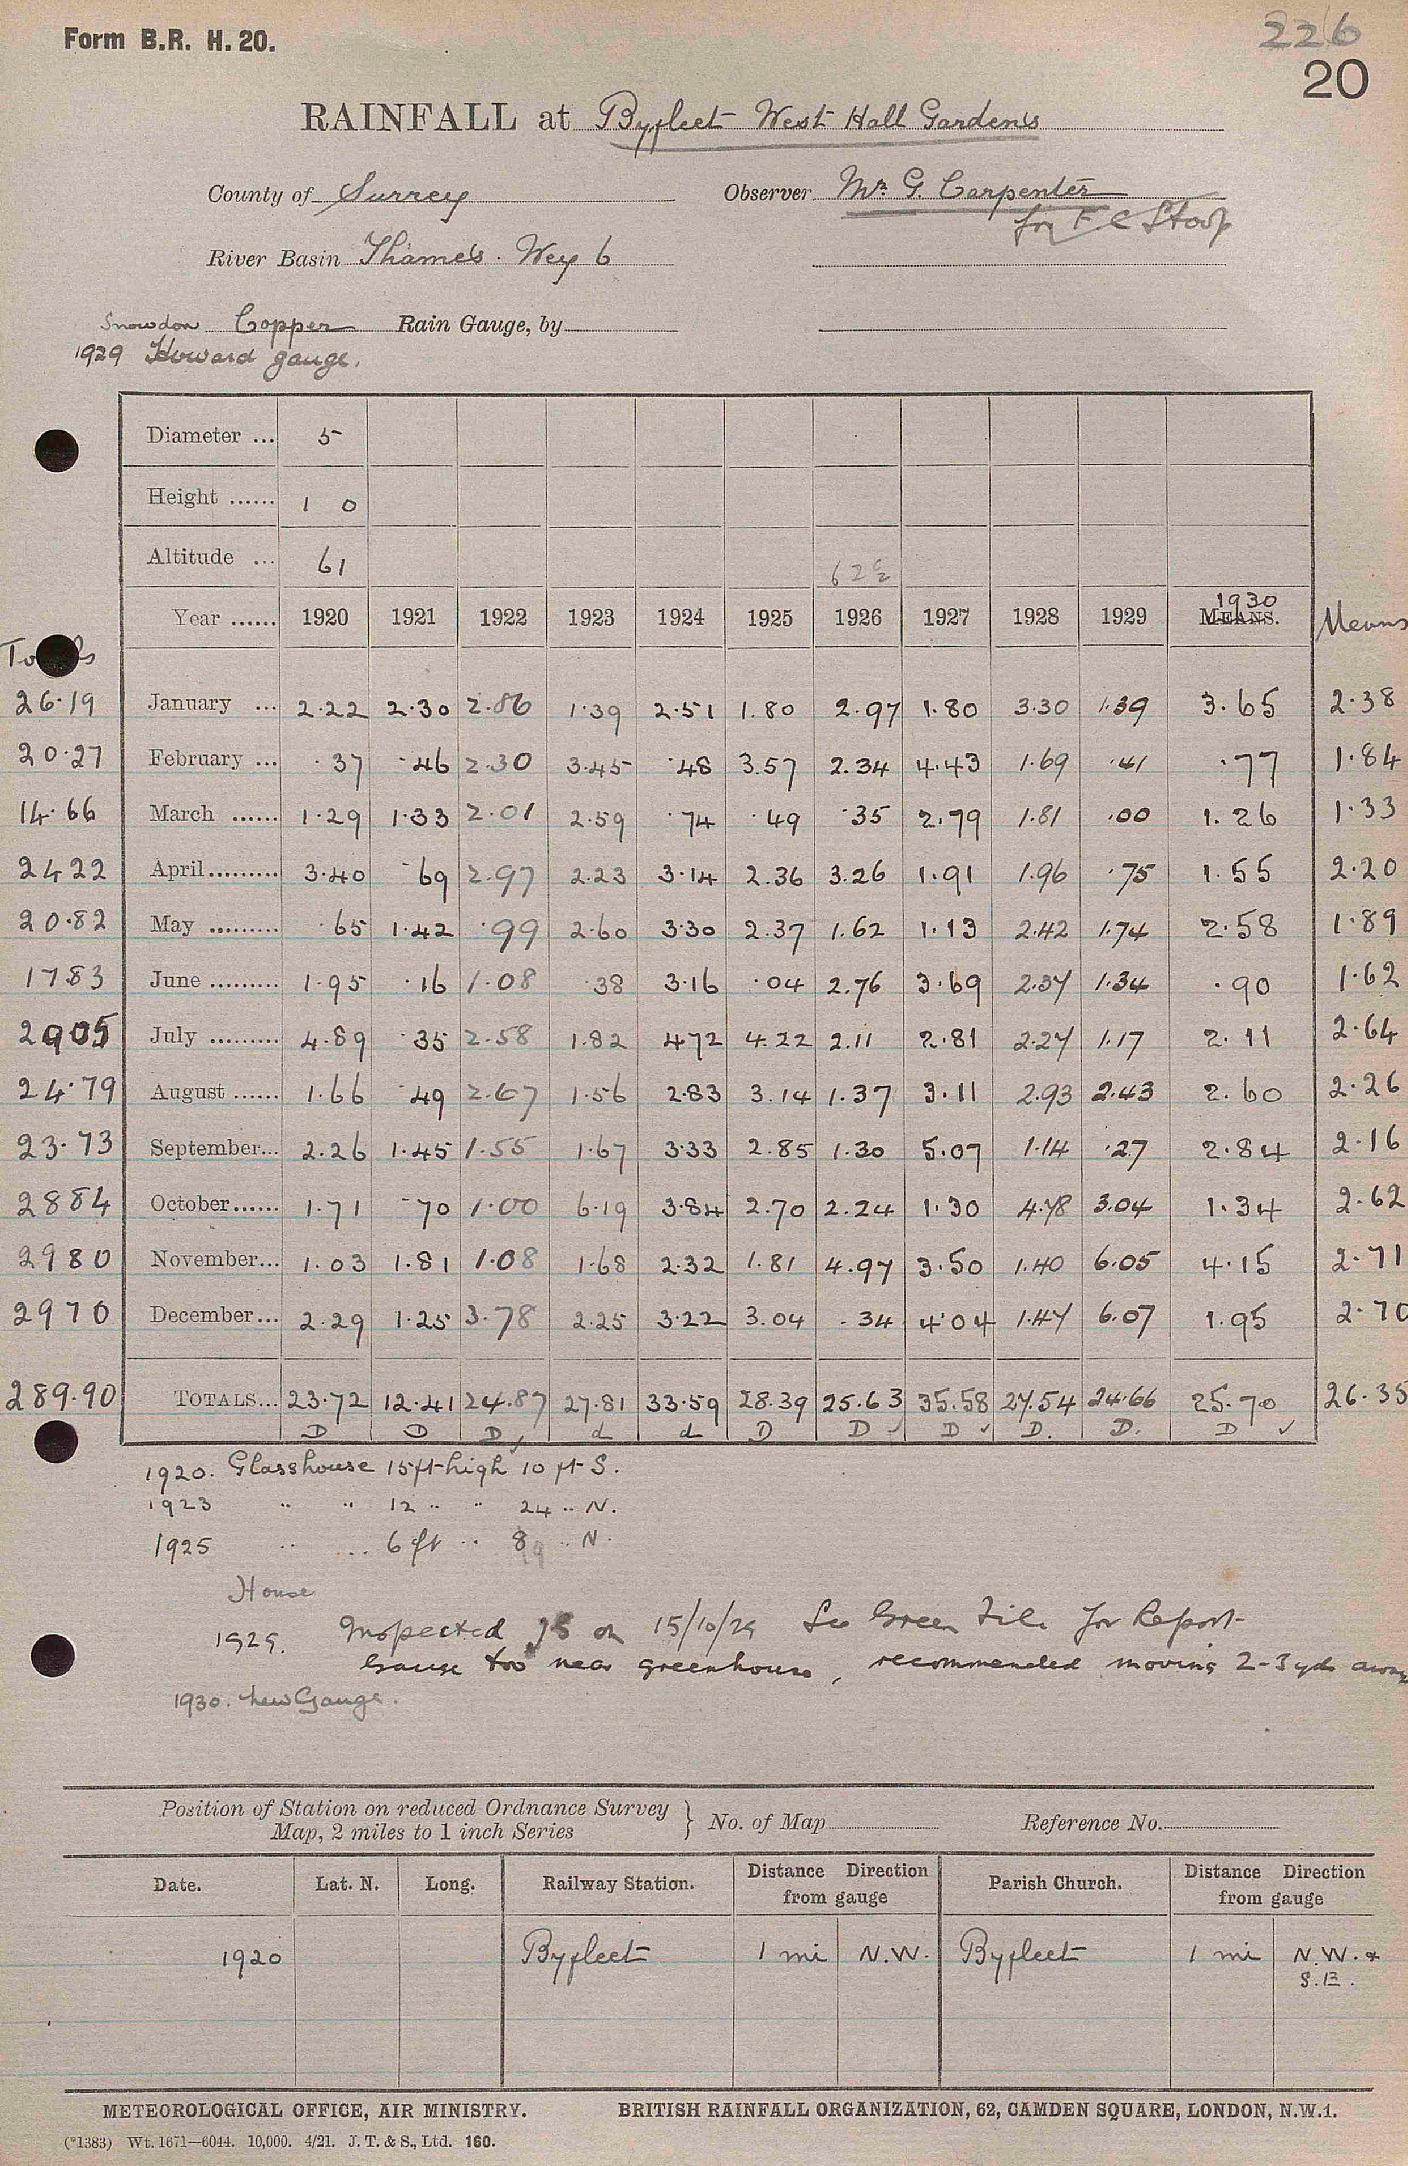 Form B.R. H. 20.
226
20
RAINFALL at Byfleet West Hall Gardens
County of Surrey Observer Mr. G. Carpenter
for F C Stoop
River Basin Thames. Wey 6
Snowdon Copper Rain Gauge, by
1929 Howard gauge.
Diameter ... 5
Height ...... 1 0
Altitude ... 61 62
Year ...... 1920 1921 1922 1923 1924 1925 1926 1927 1928 1929 1930 MEANS. Means
Totals
26.19 January ... 2.22 2.30 2.86 1.39 2.51 1.80 2.97 1.80 3.30 1.39 3.65 2.38
20.27 February ... .37 .46 2.30 3.45 .48 3.57 2.34 4.43 1.69 .41 .77 1.84
14.66 March ...... 1.29 1.33 2.01 2.59 .74 .49 .35 2.79 1.81 .00 1.26 1.33
24 22 April......... 3.40 .69 2.97 2.23 3.14 2.36 3.26 1.91 1.96 .75 1.55 2.20
20.82 May ......... .65 1.42 .99 2.60 3.30 2.37 1.62 1.13 2.42 1.74 2.58 1.89
17 83 June ......... 1.95 .16 1.08 .38 3.16 .04 2.76 3.69 2.37 1.34 .90 1.62
29 05 July ......... 4.89 .35 2.58 1.82 4.72 4.22 2.11 2.81 2.27 1.17 2.11 2.64
24.79 August ...... 1.66 .49 2.67 1.56 2.83 3.14 1.37 3.11 2.93 2.43 2.60 2.26
23.73 September... 2.26 1.45 1.55 1.67 3.33 2.85 1.30 5.07 1.14 .27 2.84 2.16
28 84 October...... 1.71 .70 1.00 6.19 3.84 2.70 2.24 1.30 4.78 3.04 1.34 2.62
29 80 November... 1.03 1.81 1.08 1.68 2.32 1.81 4.97 3.50 1.40 6.05 4.15 2.71
29 70 December... 2.29 1.25 3.78 2.25 3.22 3.04 .34 4.04 1.47 6.07 1.95 2.70
289.90 TOTALS... 23.72 12.41 24.87 27.81 33.59 28.39 25.63 35.58 27.54 24.66 25.70 26.35
D D D ✓ d d D D ✓ D ✓ D. D. D ✓
1920. Glasshouse 15ft high 10 ft S.
1923 " " 12 " " 24 " N.
1925 " ... 6 ft " 8 " N.
House
1929. Inspected JS on 15/10/29 See Green File for Report
Gauge too near greenhouse, recommended moving 2-3 yds away
1930. New Gauge.
Position of Station on reduced Ordnance Survey
Map, 2 miles to 1 inch Series } No. of Map Reference No.
Date. Lat. N. Long. Railway Station. Distance Direction from gauge Parish Church. Distance Direction from gauge
1920 Byfleet 1 mi N.W. Byfleet 1 mi N.W. &
S.E.
METEOROLOGICAL OFFICE, AIR MINISTRY. BRITISH RAINFALL ORGANIZATION, 62, CAMDEN SQUARE, LONDON, N.W.1.
(*1383) Wt. 1671—6044. 10,000. 4/21. J. T. & S., Ltd. 160.